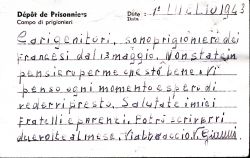 Dépôt de Prisonniers
Campo di prigionieri
Date
Data 1° LUGLIO 1943
Cari genitori, sono prigioniero dei
francesi dal 13 maggio. Non state in
pensiero per me che sto bene. Vi
penso ogni momento e spero di
redervi presto. Salutate i miei
fratelli e parenti. Potrò scrivervi
due volte al mese. Vi abbraccio.